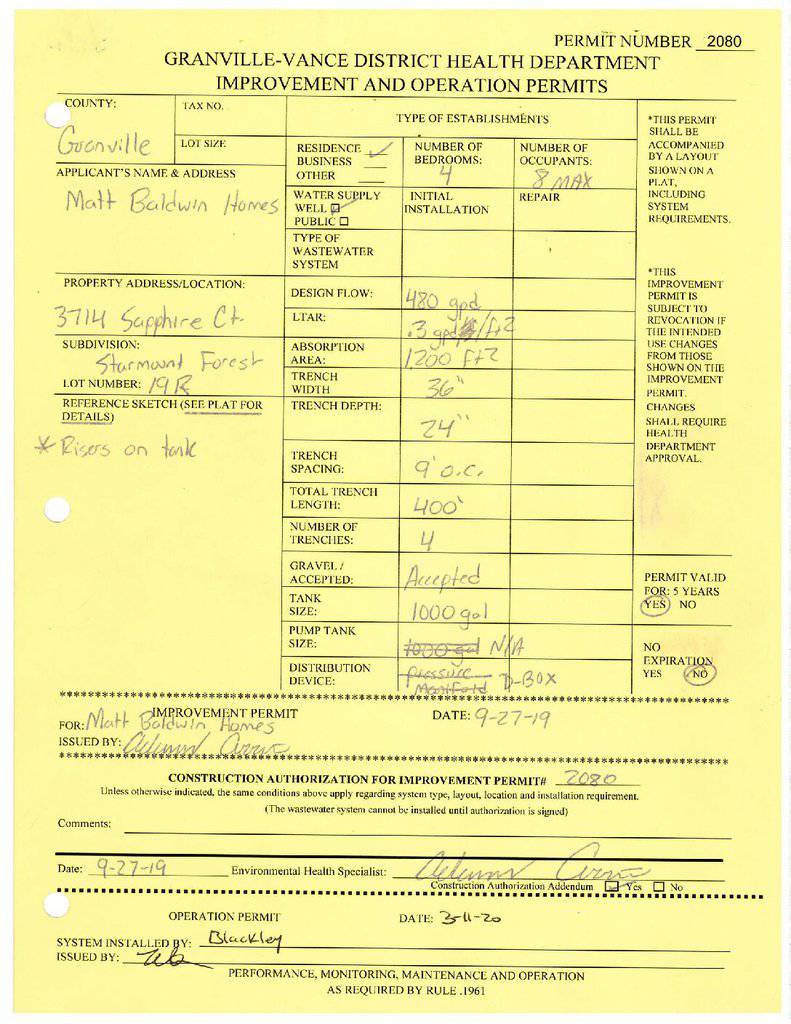 PERMIT NUMBER 2080
GRANVILLE-VANCE DISTRICT HEALTH DEPARTMENT
IMPROVEMENT AND OPERATION PERMITS
COUNTY:
Granville
TAX NO.
LOT SIZE
TYPE OF ESTABLISHMENTS
RESIDENCE ✓
BUSINESS
OTHER
NUMBER OF
BEDROOMS:
4
NUMBER OF
OCCUPANTS:
8 MAX
APPLICANT'S NAME & ADDRESS
Matt Baldwin Homes
WATER SUPPLY
WELL ☑
PUBLIC ☐
INITIAL
INSTALLATION
REPAIR
TYPE OF
WASTEWATER
SYSTEM
PROPERTY ADDRESS/LOCATION:
3714 Sapphire Ct.
SUBDIVISION:
Starmount Forest
LOT NUMBER: 19R
REFERENCE SKETCH (SEE PLAT FOR
DETAILS)
* Risers on tank
DESIGN FLOW:
480 gpd
LTAR:
.3 gpd/ft2
ABSORPTION
AREA:
1,200 ft2
TRENCH
WIDTH
36"
TRENCH DEPTH:
24"
TRENCH
SPACING:
9' o.c.
TOTAL TRENCH
LENGTH:
400'
NUMBER OF
TRENCHES:
4
GRAVEL /
ACCEPTED:
Accepted
TANK
SIZE:
1000 gal
PUMP TANK
SIZE:
1000 gal N/A
DISTRIBUTION
DEVICE:
pressure
Manifold D-BOX
*THIS PERMIT
SHALL BE
ACCOMPANIED
BY A LAYOUT
SHOWN ON A
PLAT,
INCLUDING
SYSTEM
REQUIREMENTS.
*THIS
IMPROVEMENT
PERMIT IS
SUBJECT TO
REVOCATION IF
THE INTENDED
USE CHANGES
FROM THOSE
SHOWN ON THE
IMPROVEMENT
PERMIT.
CHANGES
SHALL REQUIRE
HEALTH
DEPARTMENT
APPROVAL.
PERMIT VALID
FOR: 5 YEARS
YES NO
NO
EXPIRATION
YES NO
IMPROVEMENT PERMIT
FOR: Matt Baldwin Homes
DATE: 9-27-19
ISSUED BY:
CONSTRUCTION AUTHORIZATION FOR IMPROVEMENT PERMIT# 2080
Unless otherwise indicated, the same conditions above apply regarding system type, layout, location and installation requirement.
(The wastewater system cannot be installed until authorization is signed)
Comments:
Date: 9-27-19 Environmental Health Specialist:
Construction Authorization Addendum ☐ Yes ☐ No
OPERATION PERMIT DATE: 3-11-20
SYSTEM INSTALLED BY: Blackley
ISSUED BY:
PERFORMANCE, MONITORING, MAINTENANCE AND OPERATION
AS REQUIRED BY RULE .1961